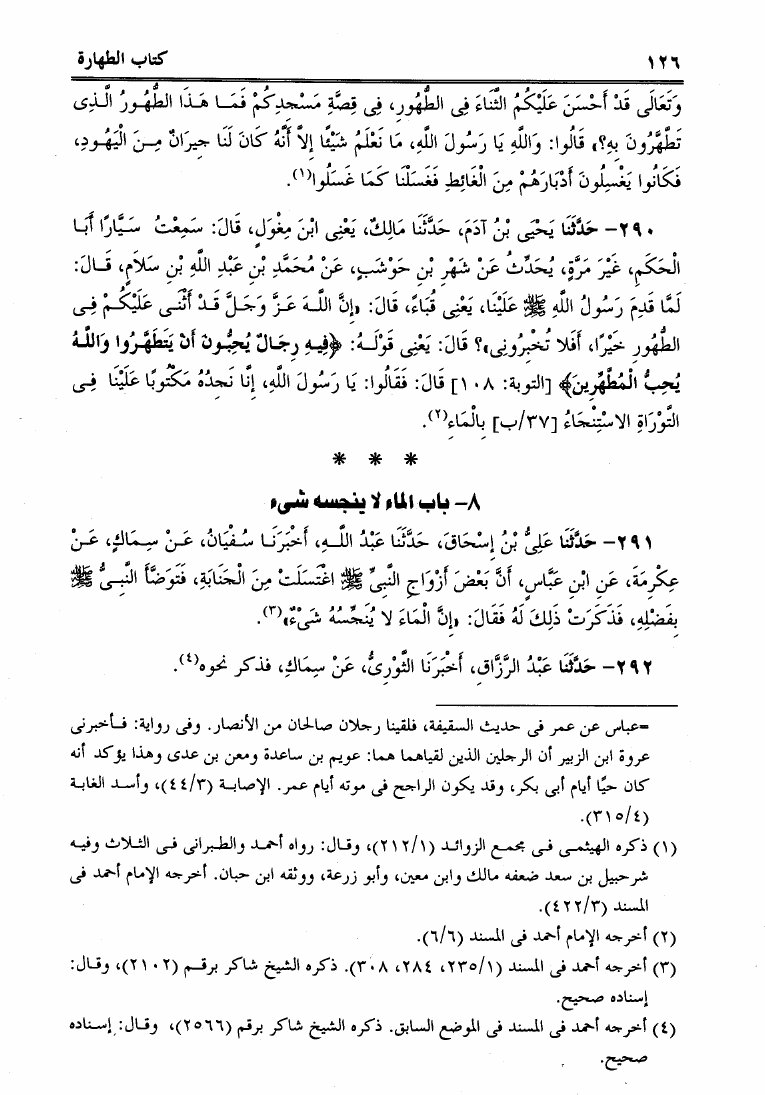 ١٢٦ كتاب الطهارة
وَتَعَالَى قَدْ أَحْسَنَ عَلَيْكُمُ الثَّنَاءَ فِى الطَّهُورِ، فِى قِصَّةِ مَسْجِدِكُمْ فَمَا هَذَا الطَّهُورُ الَّذِى
تَطَّهَّرُونَ بِهِ؟» قَالُوا: وَاللَّهِ يَا رَسُولَ اللَّهِ، مَا نَعْلَمُ شَيْئًا إِلاَّ أَنَّهُ كَانَ لَنَا جِيرَانٌ مِنَ الْيَهُودِ،
فَكَانُوا يَغْسِلُونَ أَدْبَارَهُمْ مِنَ الْغَائِطِ فَغَسَلْنَا كَمَا غَسَلُوا(١).
٢٩٠- حَدَّثَنَا يَحْيَى بْنُ آدَمَ، حَدَّثَنَا مَالِكٌ، يَعْنِى ابْنَ مِغْوَلٍ، قَالَ: سَمِعْتُ سَيَّارًا أَبَا
الْحَكَمِ، غَيْرَ مَرَّةٍ، يُحَدِّثُ عَنْ شَهْرِ بْنِ حَوْشَبٍ، عَنْ مُحَمَّدِ بْنِ عَبْدِ اللَّهِ بْنِ سَلاَمٍ، قَالَ:
لَمَّا قَدِمَ رَسُولُ اللَّهِ ﷺ عَلَيْنَا، يَعْنِى قُبَاءً، قَالَ: «إِنَّ اللَّهَ عَزَّ وَجَلَّ قَدْ أَثْنَى عَلَيْكُمْ فِى
الطُّهُورِ خَيْرًا، أَفَلا تُخْبِرُونِى»؟ قَالَ: يَعْنِى قَوْلَهُ: ﴿فِيهِ رِجَالٌ يُحِبُّونَ أَنْ يَتَطَهَّرُوا وَاللَّهُ
يُحِبُّ الْمُطَّهِّرِينَ﴾ [التوبة: ١٠٨] قَالَ: فَقَالُوا: يَا رَسُولَ اللَّهِ، إِنَّا نَجِدُهُ مَكْتُوبًا عَلَيْنَا فِى
التَّوْرَاةِ الاسْتِنْجَاءُ [٣٧/ب] بِالْمَاءِ(٢).
* * *
٨- باب الماء لا ينجسه شىء
٢٩١- حَدَّثَنَا عَلِىُّ بْنُ إِسْحَاقَ، حَدَّثَنَا عَبْدُ اللَّهِ، أَخْبَرَنَا سُفْيَانُ، عَنْ سِمَاكٍ، عَنْ
عِكْرِمَةَ، عَنِ ابْنِ عَبَّاسٍ، أَنَّ بَعْضَ أَزْوَاجِ النَّبِىِّ ﷺ اغْتَسَلَتْ مِنَ الْجَنَابَةِ، فَتَوَضَّأَ النَّبِىُّ ﷺ
بِفَضْلِهِ، فَذَكَرَتْ ذَلِكَ لَهُ فَقَالَ: «إِنَّ الْمَاءَ لا يُنَجِّسُهُ شَىْءٌ»(٣).
٢٩٢- حَدَّثَنَا عَبْدُ الرَّزَّاقِ، أَخْبَرَنَا الثَّوْرِىُّ، عَنْ سِمَاكٍ، فذكر نحوه(٤).
=عباس عن عمر فى حديث السقيفة، فلقينا رجلان صالحان من الأنصار. وفى رواية: فأخبرنى
عروة ابن الزبير أن الرجلين الذين لقياهما هما: عويم بن ساعدة ومعن بن عدى وهذا يؤكد أنه
كان حيًا أيام أبى بكر، وقد يكون الراجح فى موته أيام عمر. الإصابة (٤٤/٣)، وأسد الغابة
(٣١٥/٤).
(١) ذكره الهيثمى فى مجمع الزوائد (٢١٢/١)، وقال: رواه أحمد والطبرانى فى الثلاث وفيه
شرحبيل بن سعد ضعفه مالك وابن معين، وأبو زرعة، ووثقه ابن حبان. أخرجه الإمام أحمد فى
المسند (٤٢٢/٣).
(٢) أخرجه الإمام أحمد فى المسند (٦/٦).
(٣) أخرجه أحمد فى المسند (٢٣٥/١، ٢٨٤، ٣٠٨). ذكره الشيخ شاكر برقم (٢١٠٢)، وقال:
إسناده صحيح.
(٤) أخرجه أحمد فى المسند فى الموضع السابق. ذكره الشيخ شاكر برقم (٢٥٦٦)، وقال: إسناده
صحيح.